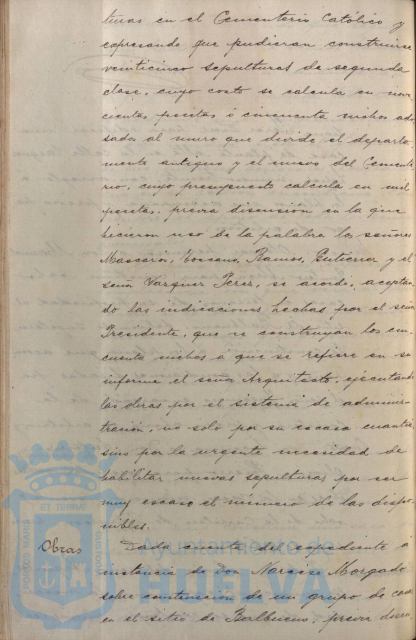 turas en el Cementerio Católico y
expresando que pudieran construirse
veinticinco sepulturas de segunda
clase, cuyo costo se calcula en nove
cientas pesetas ó cincuenta nichos ado
sados al muro que divide el departa
mento antiguo y el nuevo del Cemente
rio, cuyo presupuesto calcula en mil
pesetas, previa discusión en la que
hicieron uso de la palabra los señores
Mascarós, Toscano, Ramos, Gutierrez y el
señor Vazquez Perez, se acordó, aceptan
do las indicaciones hechas por el señor
Presidente, que se construyan los cin
cuenta nichos á que se refiere en su
informe el señor Arquitecto, ejecutando
las obras por el sistema de adminis
tración, no solo por su escasa cuantía
sino por la urgente necesidad de
habilitar nuevas sepulturas por ser
muy escaso el número de las dispo
nibles.
Obras
Dada cuenta del expediente á
instancia de Don Narciso Morgado
sobre construcción de un grupo de casas
en el sitio de Balbueno, previa discu
PORTUS MARIS ET TERRAE CUSTODIA
Ayuntamiento de
HUELVA